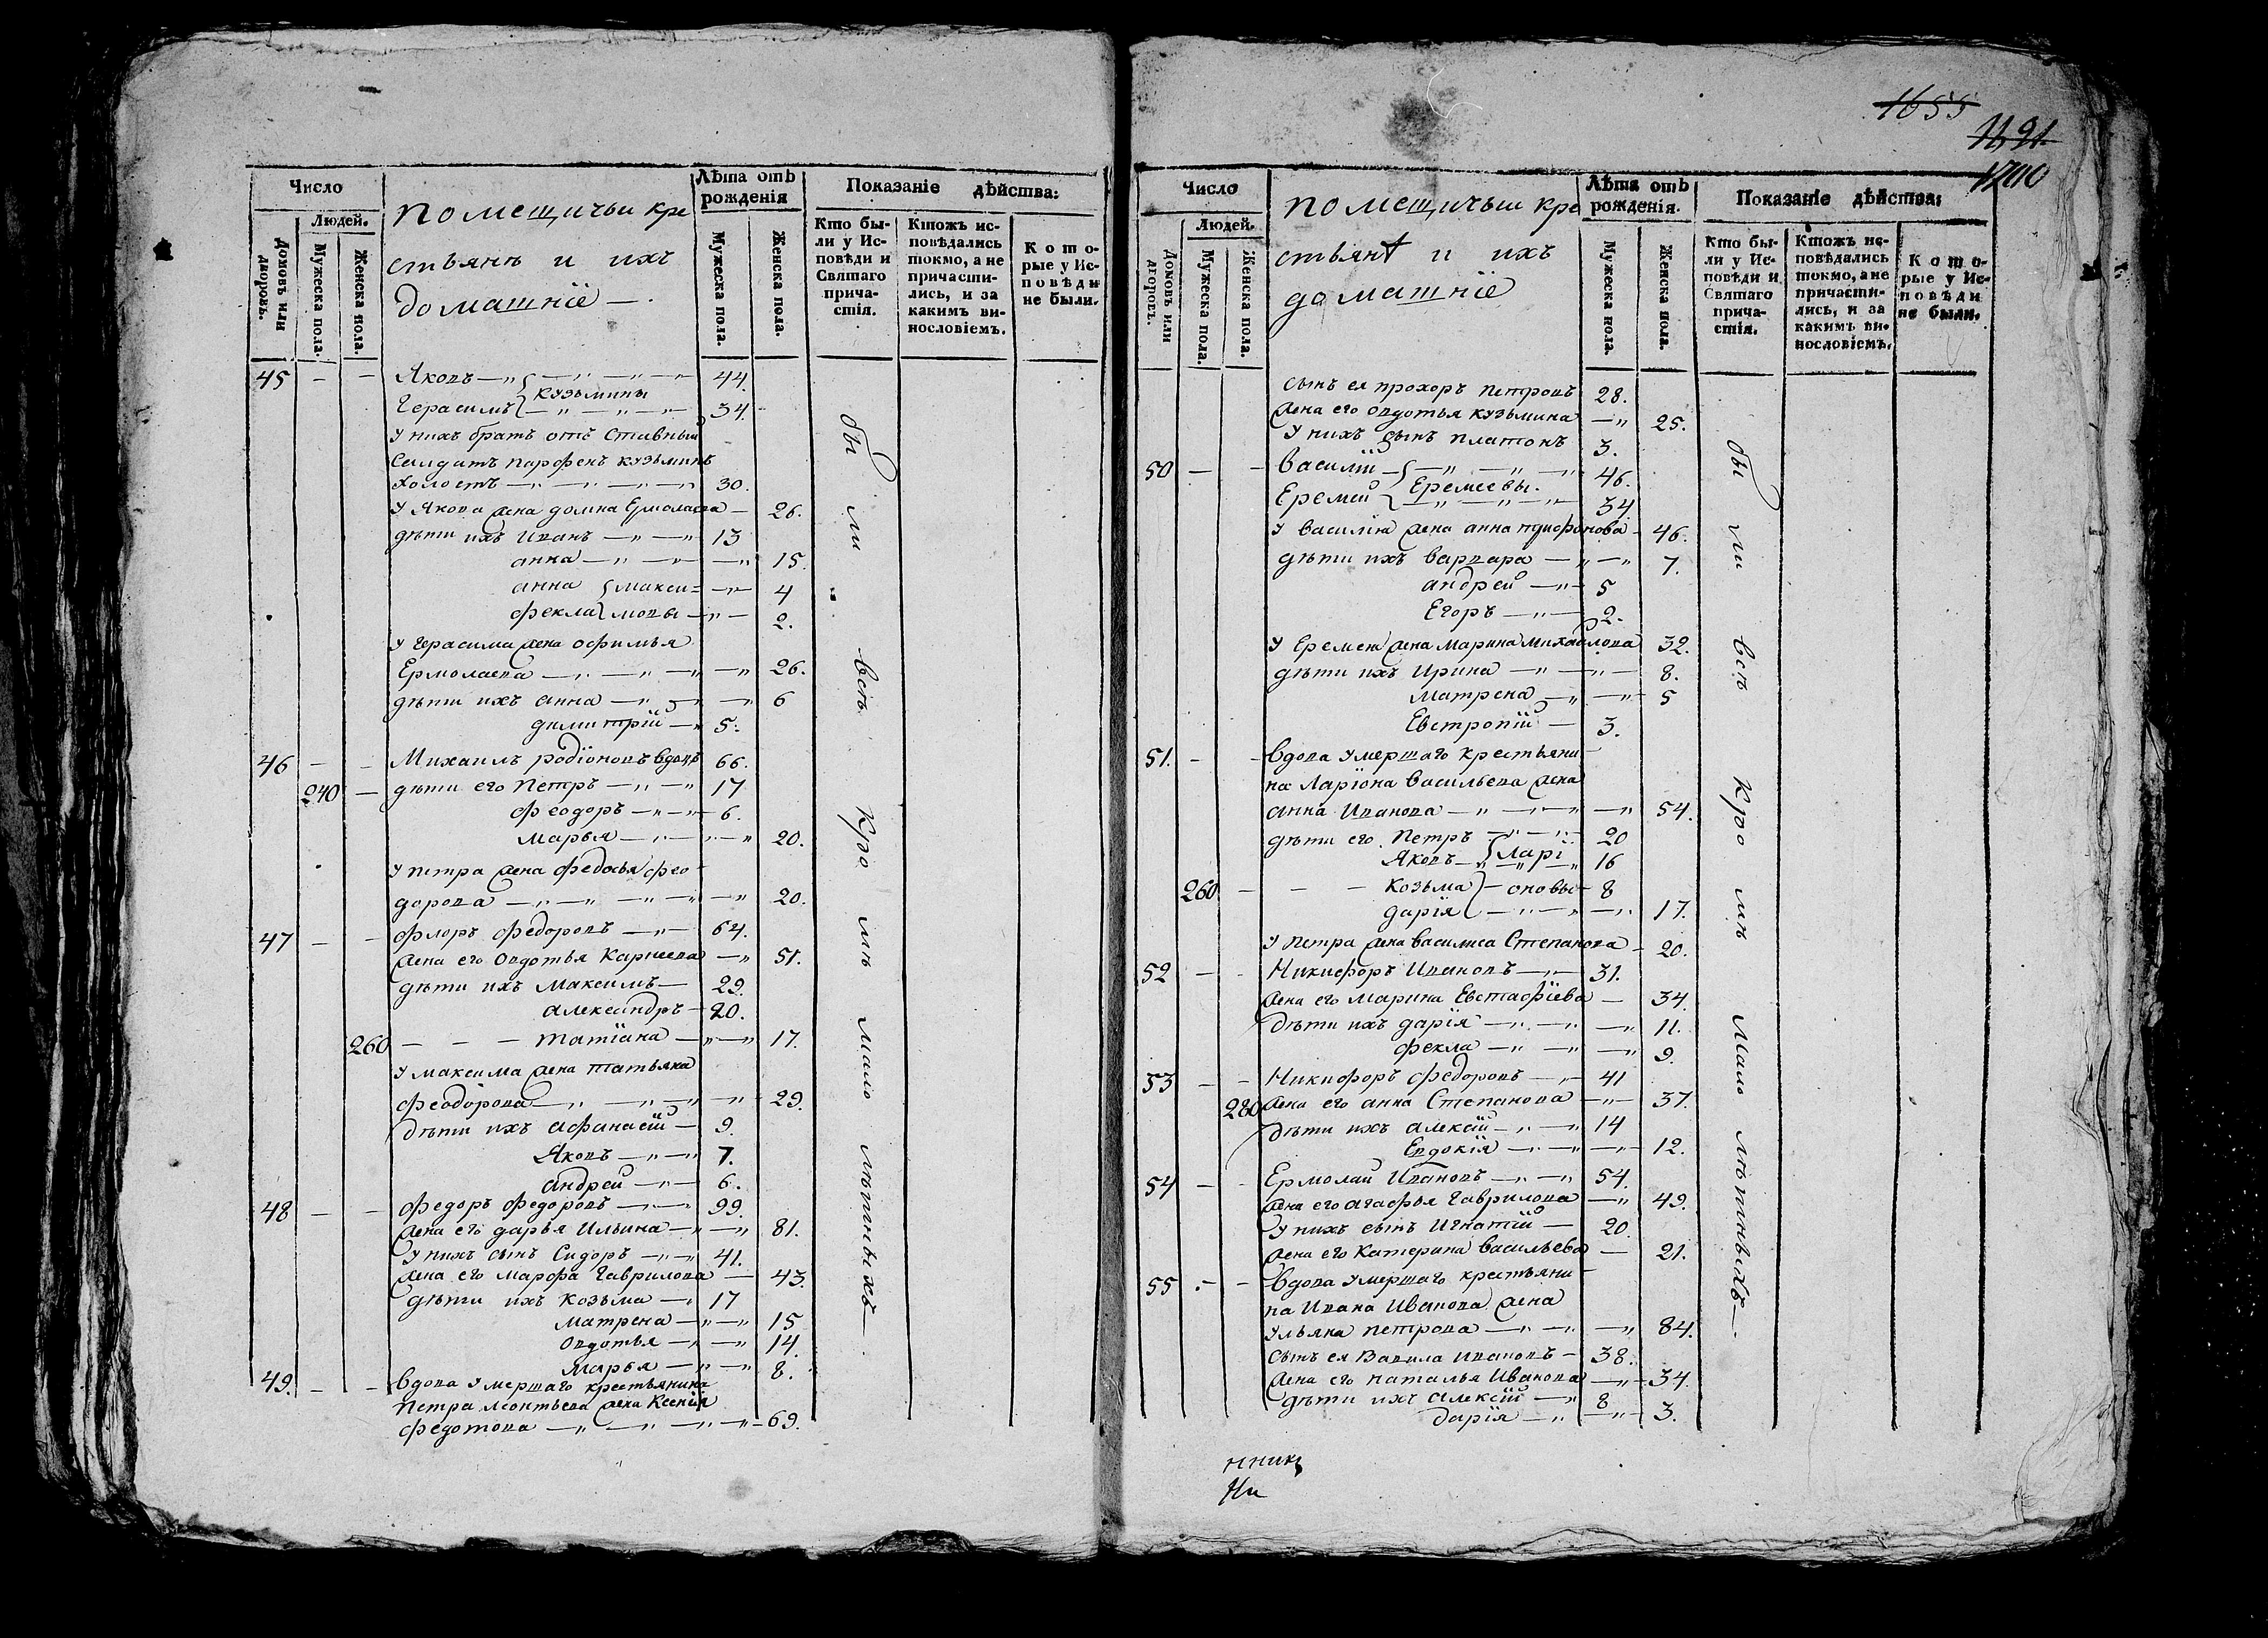 1655
1191
1700
Число
Людей.
Домовъ или дворовъ.
Мужеска пола.
Женска пола.
помещичьи кре
стьянъ и ихъ
домашніе —.
Лѣта отъ рожденія
Мужеска пола.
Женска пола.
Показаніе дѣйства:
Кто бы-
ли у Ис-
повѣди и
Святаго
прича-
стія.
Ктожъ ис-
повѣдались
токмо, а не
причасти-
лись, и за
какимъ ви-
нословіемъ.
Кото-
рые у Ис-
повѣди
не были.
45 — — Яковъ —„ 44.
Кузьмины
Герасимъ —„—„— 34.
У нихъ братъ отъ Ставный
Салдатъ Парфенъ Кузьминъ
холостъ —„—„— 30.
У Якова жена домна Ермолаева — 26.
дѣти ихъ Иванъ —„—„ 13
анна —„—„ 15.
анна макси= —„— 4
фекла мовы —„— 2.
У Герасима жена офимья
Ермолаева —„—„— 26.
дѣти ихъ анна —„—„ 6
димитрій —„ 5.
46 — — Михаилъ родіоновъ вдовъ 66.
240 — дѣти его Петръ —„—„ 17
феодоръ —„—„ 6.
марья —„—„ 20.
У петра жена федосья фео-
дорова —„—„—„ 20.
47 — — флоръ федоровъ —„— 64.
жена его Овдотья Карнеева —„ 51.
дѣти ихъ Максимъ — 29.
александръ — 20.
260 — — — татіана —„—„ 17.
У максима жена татьяна
феодорова —„—„—„ 29.
дѣти ихъ афанасій — 9.
Яковъ —„—„ 7.
андрей —„— 6.
48 — — федоръ федоровъ —„— 99.
жена его дарья Ильина —„—„ 81.
У нихъ сынъ Сидоръ —„—„ 41.
жена его марфа Гаврилова — 43.
дѣти ихъ козьма —„ 17
матрена —„—„ 15
овдотья —„—„ 14.
марья —„—„ 8.
49. — — вдова умершаго крестьянина
Петра леонтьева жена Ксенія
федотова —„—„—„— 69.
бы ли всѣ кро мѣ мало лѣтныхъ —.
Число
Людей.
Домовъ или дворовъ.
Мужеска пола.
Женска пола.
помещичьи кре
стьянъ и ихъ
домашніе
Лѣта отъ рожденія.
Мужеска пола.
Женска пола.
Показаніе дѣйства:
Кто бы-
ли у Ис-
повѣди и
Святаго
прича-
стія.
Ктожъ ис-
повѣдались
токмо, а не
причасти-
лись, и за
какимъ ви-
нословіемъ.
Кото-
рые у Ис-
повѣди
не были.
сынъ ея прохоръ петровъ 28.
жена его овдотья кузьмина —„ 25.
У нихъ сынъ платонъ 3.
50 — — василій —„—„—„ 46.
Еремеевы.
Еремей —„—„—„ 34
У василія жена анна 46.
дѣти ихъ варвара —„—„ 7.
андрей —„— 5
Егоръ —„— 2.
У Еремея жена марина михайлова 32.
дѣти ихъ Ирина —„—„— 8.
матрена —„—„ 5
Евстропій — 3.
51. — — вдова умершаго крестьяни-
на Ларіона васильева жена
анна Иванова —„—„—„ 54.
дѣти его Петръ —„—„ 20
Яковъ —„ Ларі „ 16
260 — — — козьма — оновы — 8
дарія —„—„—„ 17.
У петра жена василиса Степанова — 20.
52 — — Никифоръ Ивановъ —„— 31.
жена его марина Евстафіева — 34.
дѣти ихъ дарія —„—„—„ 11.
фекла —„—„—„ 9.
53 — — Никифоръ федоровъ —„— 41
280 жена его анна Степанова —„— 37.
дѣти ихъ алексій —„—„ 14
Евдокія —„—„—„ 12.
54 — — Ермолай Ивановъ —„—„ 54.
жена его агафья Гаврилова —„ 49.
У нихъ сынъ Игнатій — 20.
жена его катерина васильева — 21.
55 — — вдова умершаго крестьяни-
на Ивана Иванова жена
Ульяна петрова —„—„—„ 84.
сынъ ея Вавила ивановъ — 38.
жена его наталья Иванова —„— 34.
дѣти ихъ алексій —„ 8
дарія —„—„— 3.
бы ли всѣ кро мѣ мало лѣтныхъ —.